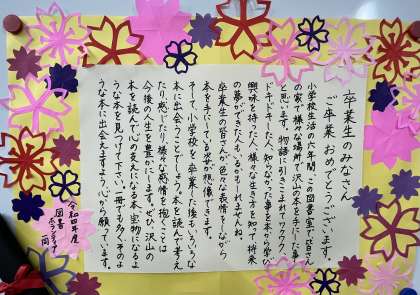 卒業生のみなさん
ご卒業 おめでとうございます。
小学校生活の六年間、この図書室で皆さん
の家で、様々な場所で沢山の本を手にした事
と思います。物語に引きこまれてワクワク
ドキドキした人、知らなかった事を本から学び
興味を持った人、様々な生き方を知って将来
の夢ができた人もいるかもしれませんね。
卒業生の皆さんが色々な表情をしながら
本を手にしている姿が想像できます。
そして、小学校を卒業した後もいろいろな
本に出会うことでしょう。本を読んで考え
たり、感じたり、様々な感情を抱くことは
今後の人生を豊かにします。ぜひ、沢山の
本を読んで心の支えになる本、宝物になるよ
うな本を見つけて下さい。一冊でも多くそのよ
うな本に出会えますように心から願っています。
令和四年度
図書
ボランティア
一同